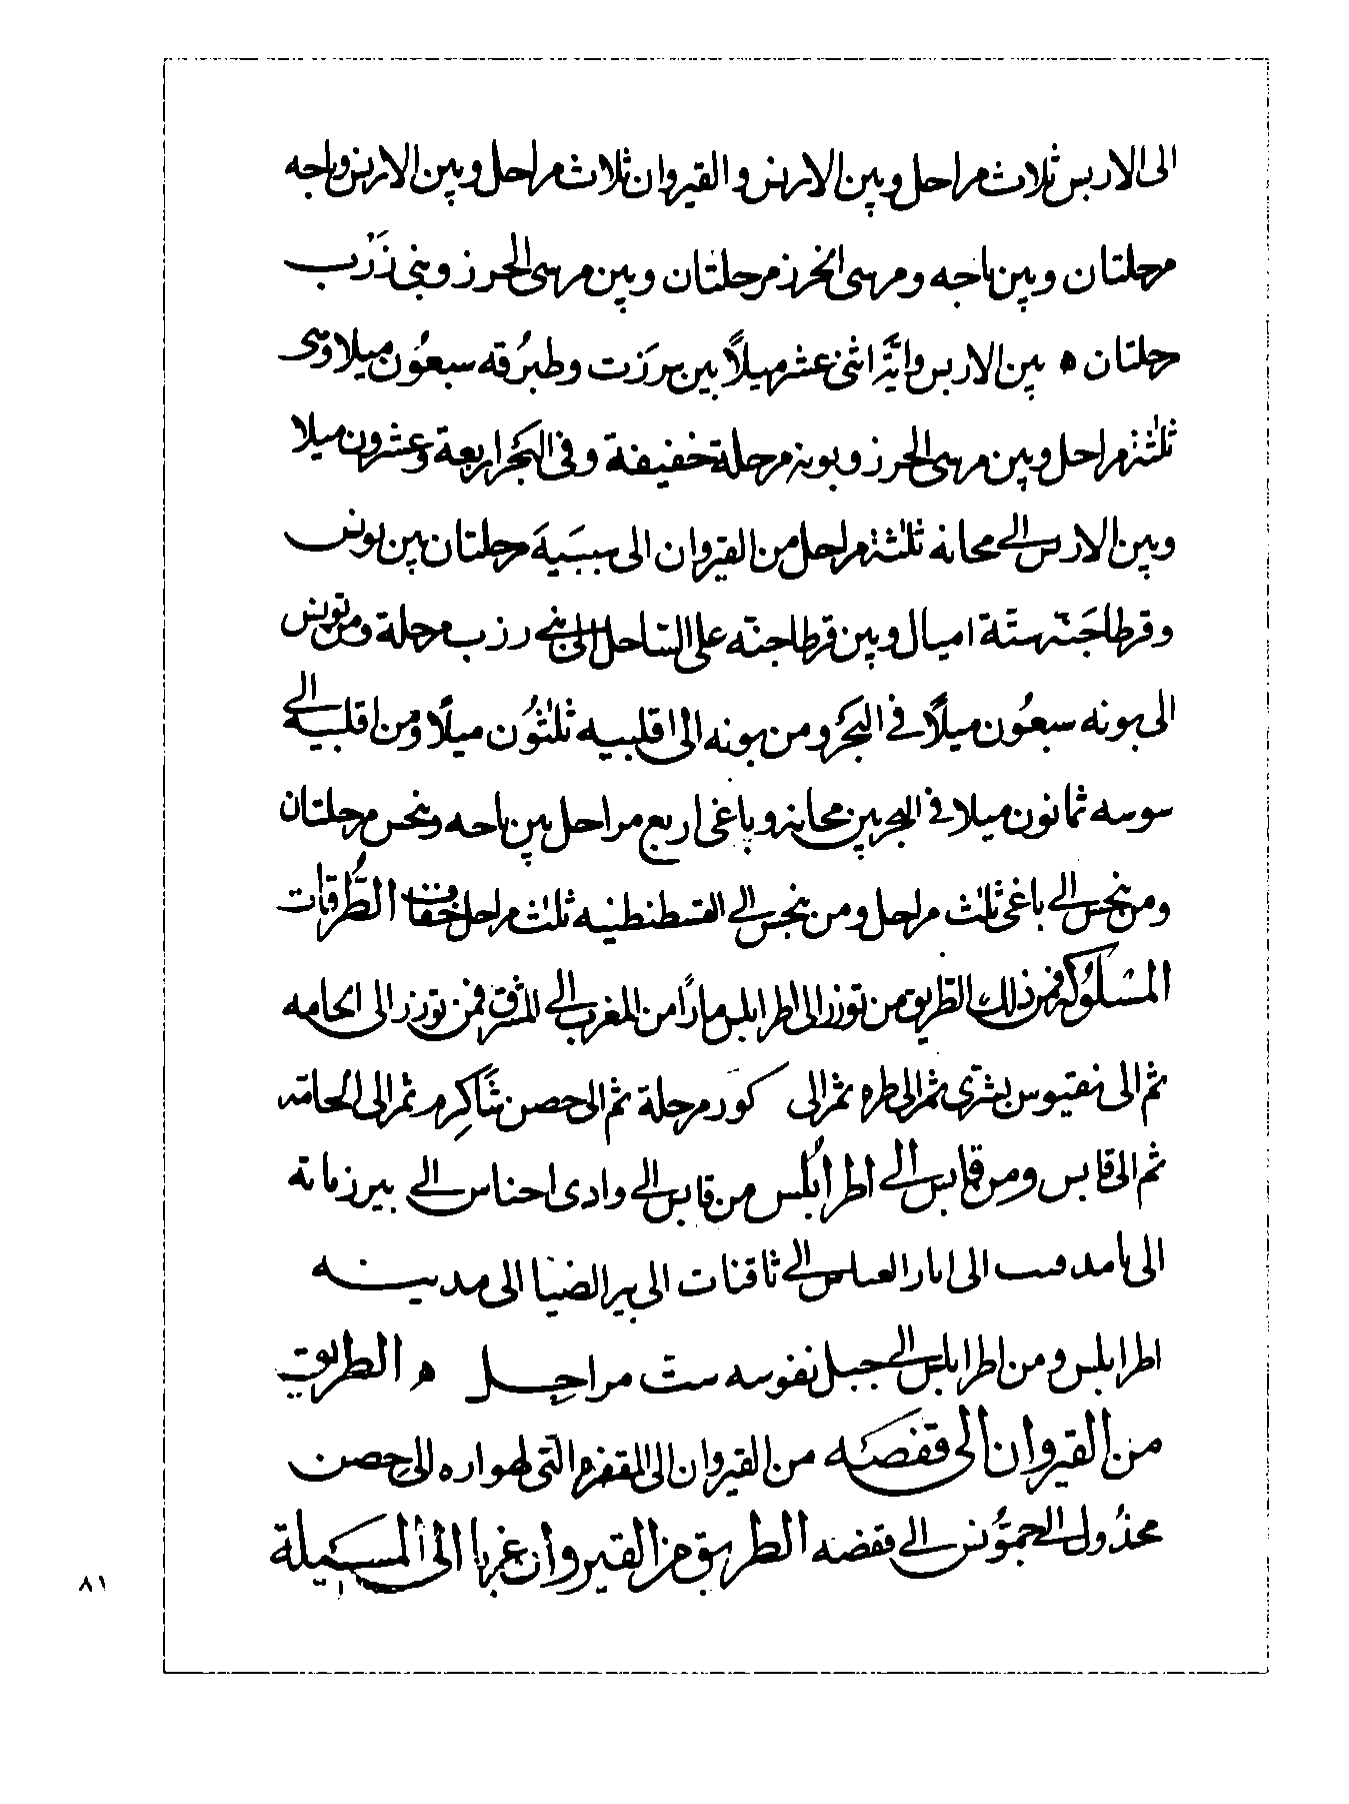 الى الاربس ثلاث مراحل وبين الاربس والقيروان ثلاث مراحل وبين الاربس وباجه
مرحلتان وبين باجه ومرسى الخرز مرحلتان وبين مرسى الحرز وبنى زَرْب
مرحلتان ه بين الاربس وابَّة اثنى عشر ميلاً بين برزت وطبرُقه سبعُون ميلا وهى
ثلٰثة مراحل وبين مرسى الحرز وبونه مرحلة خفيفة وفى البحَر اربعة وعشرون ميلا
وبين الاربس الى مجانه ثلٰثة مراحل من القيروان الى سبَيبَة مرحلتان بين تونس
وقرطاجَنّه ستّة اميال وبين قرطاجنّه على السّاحل الى بنى رزب مرحلة ومن تونس
الى بونه سبعُون ميلاً فى البحَر ومن بونه الى اقليبيه ثلٰثُون ميلاً ومن اقليبيه الى
سوسه ثمانون ميلا فى البحر بين مجانه وباغى اربع مراحل بين باجه وينجس مرحلتان
ومن ينجس الى باغى ثلٰث مراحل ومن ينجس الى القسطنطينيه ثلٰث مراحل خفاف الطُّرقات
المسْلُوكه فمن ذلك الطّريق من توزر الى اطرابلس مارًا من المغرب الى المشرق فمن توزر الى الحامه
ثم الى نفقيوس بشرى ثم الى طره ثم الى كور مرحلة ثم الى حصن تّاكِرم ثم الى الحامّه
ثم الى قابس ومن قابس الى اطرابُلس من قابس الى وادى احناس الى بير زناتة
الى الى ابار العباس الى تاقنات الى بير الضيا الى مدينه
اطرابلس ومن اطرابلس الى جبل نفوسه ستّ مراحل ه الطريق
من القيروان الى قفصَه من القيروان الى المقفزم التى لهواره الى حصن
مجدُول الى جمّونس الى قفصه الطريق من القيروان غربا الى المسَيلة
٨١